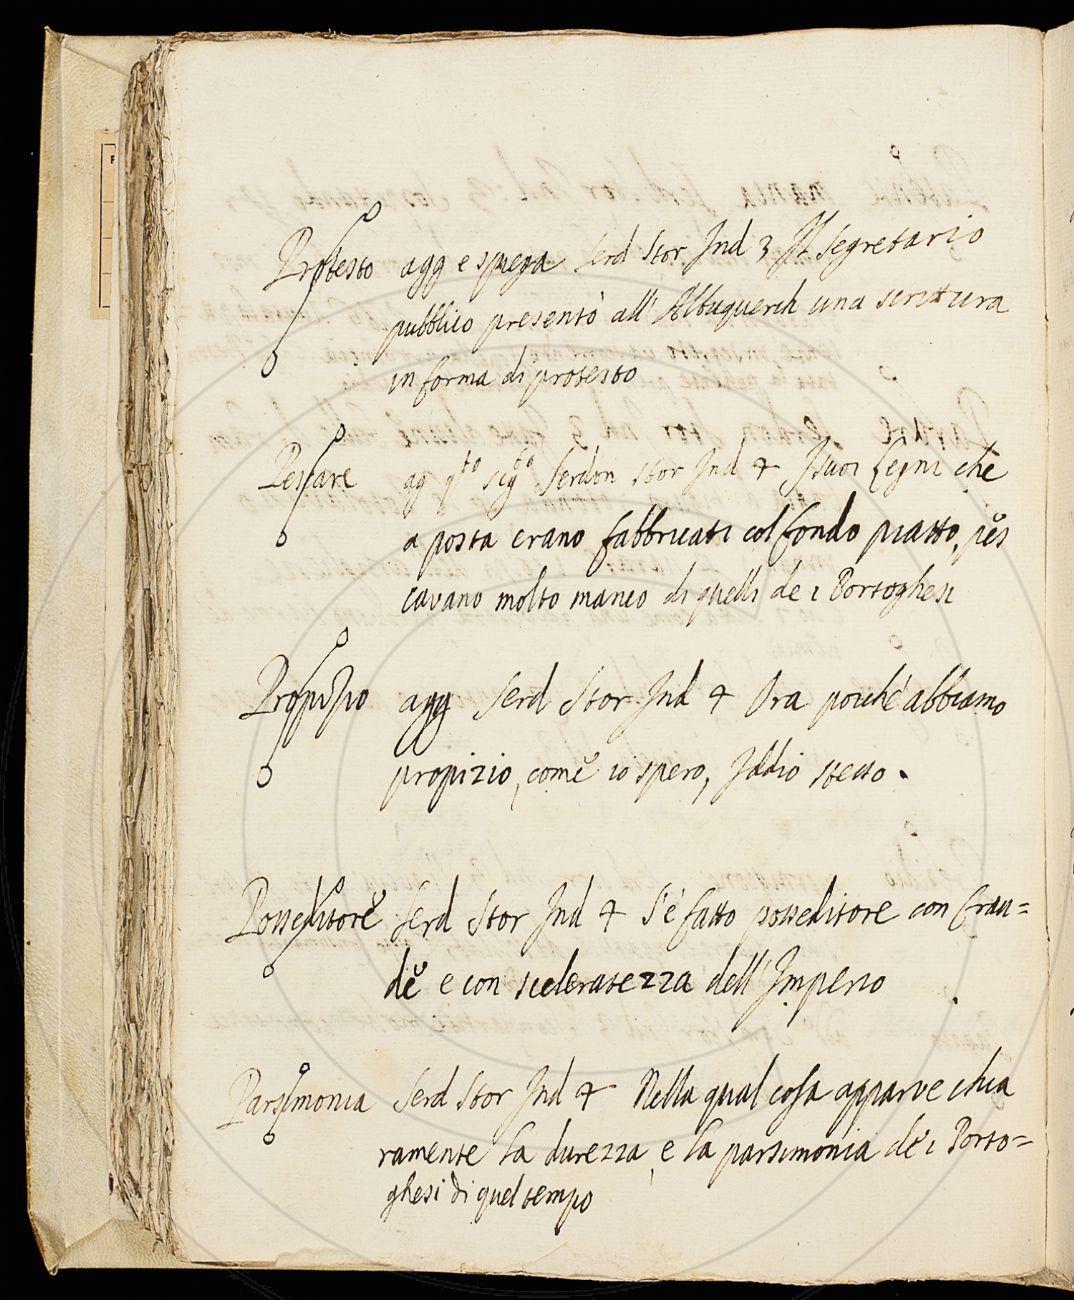 Protesto agg e spiega Serd Stor Ind 3 Il Segretario
pubblico presentò all' Albuquerch una scrittura
in forma di protesto
Pescare ag q.to sig.to Serdon Stor Ind 4 I suoi legni che
a posta erano fabbricati col fondo piatto, pes
cavano molto manco di quelli de i Portoghesi
Propizio agg Serd Stor Ind 4 Ora poiche abbiamo
propizio, come io spero, Iddio stesso.
Posseditore Serd Stor Ind 4 S'è fatto posseditore con frau=
de e con scelaratezza dell' Imperio
Parsimonia Serd Stor Ind 4 Nella qual cosa apparve chia
ramente la durezza, e la parsimonia de i Porto=
ghesi di quel tempo